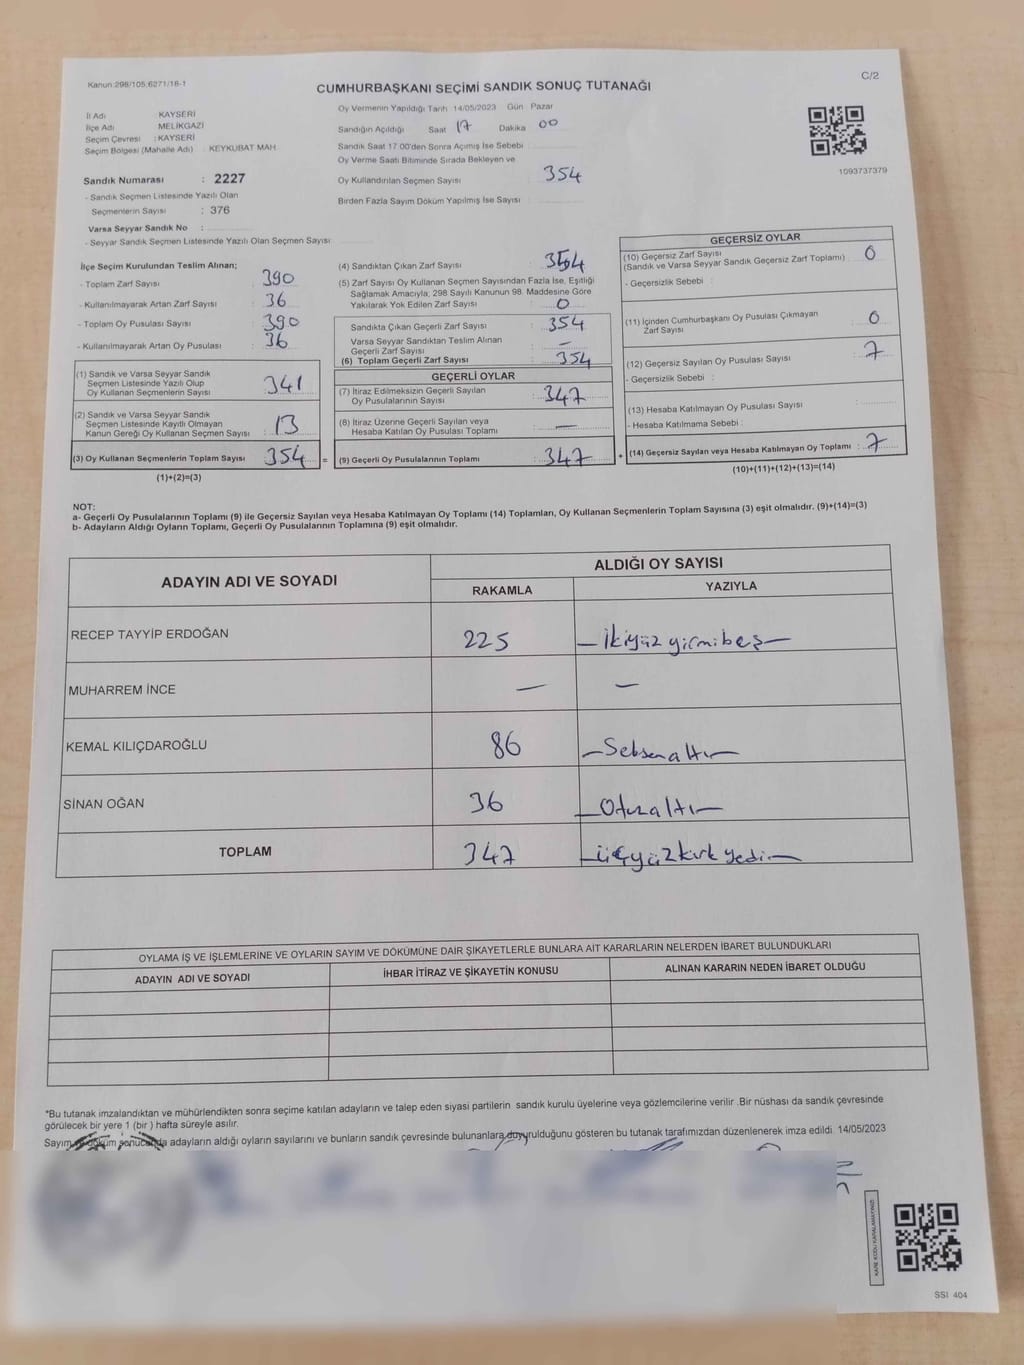 Kanun:298/105,6271/18-1
C/2
CUMHURBAŞKANI SEÇİMİ SANDIK SONUÇ TUTANAĞI
İl Adı KAYSERİ
İlçe Adı MELİKGAZİ
Seçim Çevresi : KAYSERİ
Seçim Bölgesi (Mahalle Adı) : KEYKUBAT MAH.
Sandık Numarası : 2227
- Sandık Seçmen Listesinde Yazılı Olan
Seçmenlerin Sayısı : 376
Varsa Seyyar Sandık No :
- Seyyar Sandık Seçmen Listesinde Yazılı Olan Seçmen Sayısı
Oy Vermenin Yapıldığı Tarih 14/05/2023 Gün Pazar
Sandığın Açıldığı Saat 17 Dakika 00
Sandık Saat 17.00'den Sonra Açımış İse Sebebi
Oy Verme Saati Bitiminde Sırada Bekleyen ve
Oy Kullandırılan Seçmen Sayısı 354
Birden Fazla Sayım Döküm Yapılmış İse Sayısı
1093737379
İlçe Seçim Kurulundan Teslim Alınan;
- Toplam Zarf Sayısı : 390
- Kullanılmayarak Artan Zarf Sayısı : 36
- Toplam Oy Pusulası Sayısı : 390
- Kullanılmayarak Artan Oy Pusulası : 36
(1) Sandık ve Varsa Seyyar Sandık
Seçmen Listesinde Yazılı Olup
Oy Kullanan Seçmenlerin Sayısı : 341
(2) Sandık ve Varsa Seyyar Sandık
Seçmen Listesinde Kayıtlı Olmayan
Kanun Gereği Oy Kullanan Seçmen Sayısı : 13
(3) Oy Kullanan Seçmenlerin Toplam Sayısı : 354 =
(1)+(2)=(3)
(4) Sandıktan Çıkan Zarf Sayısı : 354
(5) Zarf Sayısı Oy Kullanan Seçmen Sayısından Fazla İse, Eşitliği
Sağlamak Amacıyla; 298 Sayılı Kanunun 98. Maddesine Göre
Yakılarak Yok Edilen Zarf Sayısı : 0
Sandıkta Çıkan Geçerli Zarf Sayısı : 354
Varsa Seyyar Sandıktan Teslim Alınan
Geçerli Zarf Sayısı : –
(6) Toplam Geçerli Zarf Sayısı : 354
GEÇERLİ OYLAR
(7) İtiraz Edilmeksizin Geçerli Sayılan
Oy Pusulalarının Sayısı : 347
(8) İtiraz Üzerine Geçerli Sayılan veya
Hesaba Katılan Oy Pusulası Toplamı : —
(9) Geçerli Oy Pusulalarının Toplamı : 347 +
GEÇERSİZ OYLAR
(10) Geçersiz Zarf Sayısı
(Sandık ve Varsa Seyyar Sandık Geçersiz Zarf Toplamı) : 0
- Geçersizlik Sebebi :
(11) İçinden Cumhurbaşkanı Oy Pusulası Çıkmayan
Zarf Sayısı : 0
(12) Geçersiz Sayılan Oy Pusulası Sayısı : 7
- Geçersizlik Sebebi :
(13) Hesaba Katılmayan Oy Pusulası Sayısı
- Hesaba Katılmama Sebebi :
(14) Geçersiz Sayılan veya Hesaba Katılmayan Oy Toplamı : 7
(10)+(11)+(12)+(13)=(14)
NOT:
a- Geçerli Oy Pusulalarının Toplamı (9) ile Geçersiz Sayılan veya Hesaba Katılmayan Oy Toplamı (14) Toplamları, Oy Kullanan Seçmenlerin Toplam Sayısına (3) eşit olmalıdır. (9)+(14)=(3)
b- Adayların Aldığı Oyların Toplamı, Geçerli Oy Pusulalarının Toplamına (9) eşit olmalıdır.
ADAYIN ADI VE SOYADI ALDIĞI OY SAYISI
RAKAMLA YAZIYLA
RECEP TAYYİP ERDOĞAN 225 – İkiyüz yirmibeş –
MUHARREM İNCE — –
KEMAL KILIÇDAROĞLU 86 – Seksenaltı –
SİNAN OĞAN 36 – Otuzaltı –
TOPLAM 347 – üçyüzkırk yedi –
OYLAMA İŞ VE İŞLEMLERİNE VE OYLARIN SAYIM VE DÖKÜMÜNE DAİR ŞİKAYETLERLE BUNLARA AİT KARARLARIN NELERDEN İBARET BULUNDUKLARI
ADAYIN ADI VE SOYADI İHBAR İTİRAZ VE ŞİKAYETİN KONUSU ALINAN KARARIN NEDEN İBARET OLDUĞU
*Bu tutanak imzalandıktan ve mühürlendikten sonra seçime katılan adayların ve talep eden siyasi partilerin sandık kurulu üyelerine veya gözlemcilerine verilir .Bir nüshası da sandık çevresinde
görülecek bir yere 1 (bir ) hafta süreyle asılır.
Sayım ve döküm sonucunda adayların aldığı oyların sayılarını ve bunların sandık çevresinde bulunanlara duyurulduğunu gösteren bu tutanak tarafımızdan düzenlenerek imza edildi. 14/05/2023
KARE KODU KARALAMAYINIZ!
SSI 404